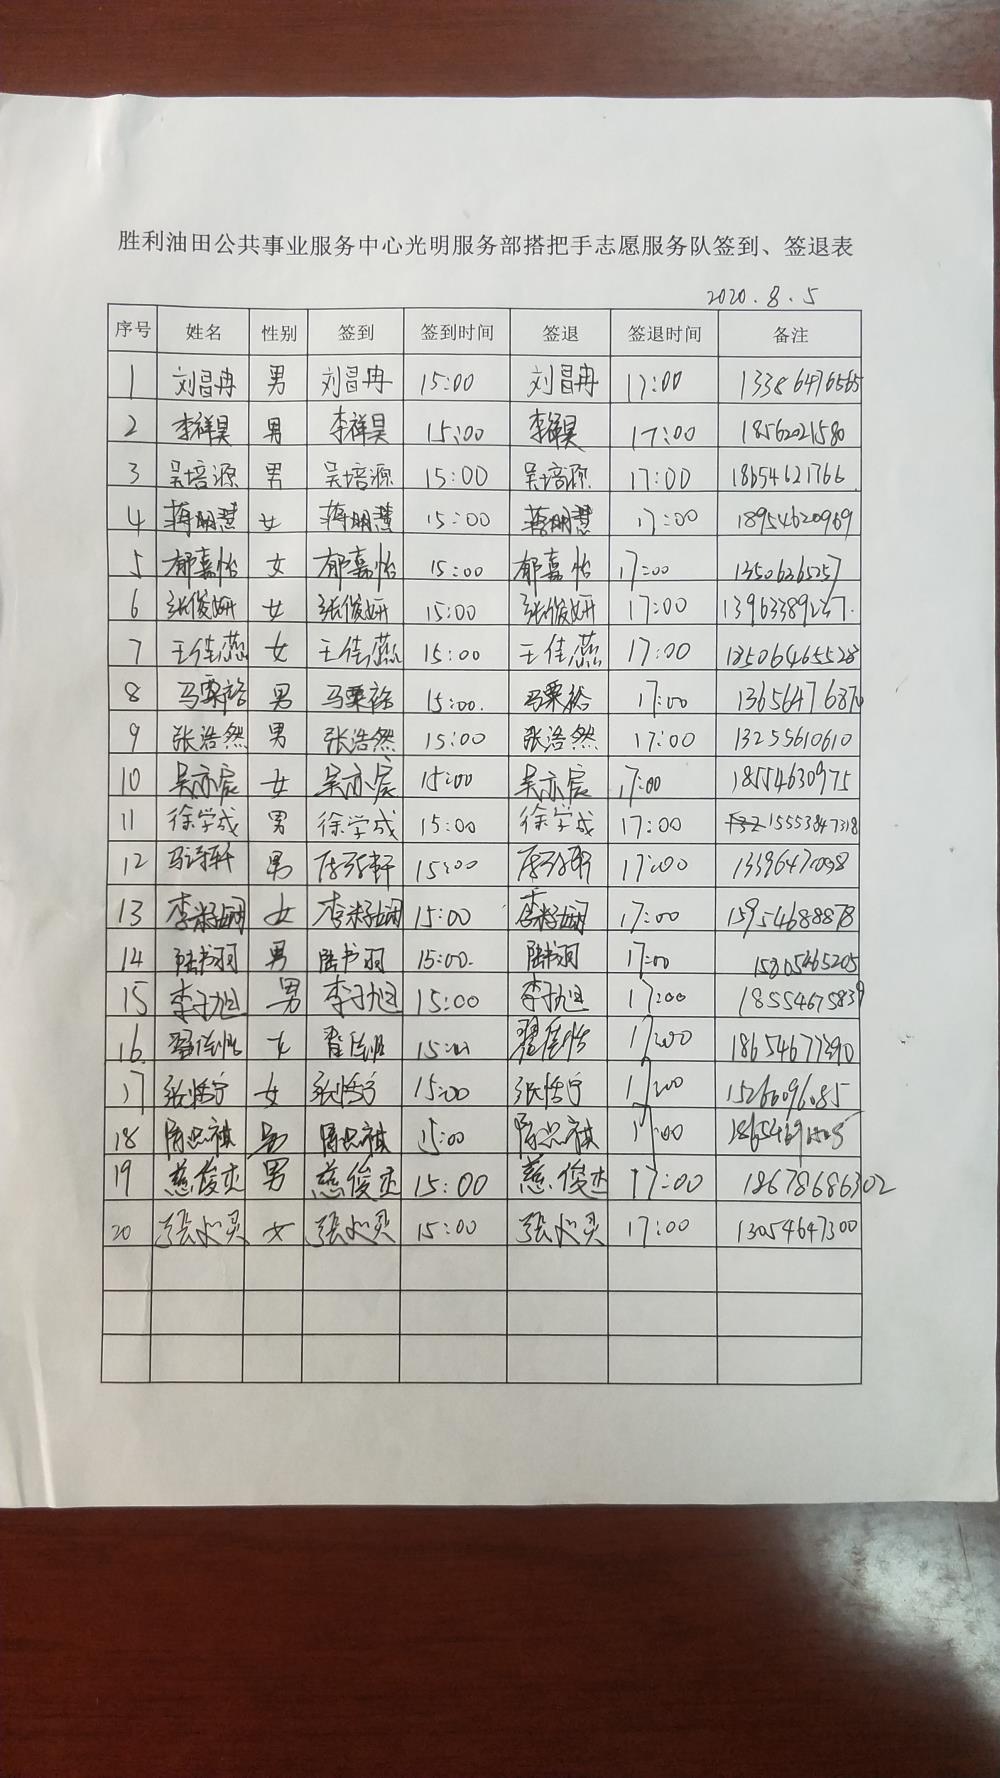 胜利油田公共事业服务中心光明服务部搭把手志愿服务队签到、签退表
2020.8.5
序号 姓名 性别 签到 签到时间 签退 签退时间 备注
1 刘昌冉 男 刘昌冉 15:00 刘昌冉 17:00 13386476565
2 李祥昊 男 李祥昊 15:00 李祥昊 17:00 18562021580
3 吴培源 男 吴培源 15:00 吴培源 17:00 18654621766
4 蒋明慧 女 蒋明慧 15:00 蒋明慧 17:00 18954620969
5 郁嘉怡 女 郁嘉怡 15:00 郁嘉怡 17:00
6 张俊妍 女 张俊妍 15:00 张俊妍 17:00
7 王佳燕 女 王佳燕 15:00 王佳燕 17:00 18506465528
8 马栗裕 男 马栗裕 15:00. 马栗裕 17:00
9 张浩然 男 张浩然 15:00 张浩然 17:00 13255610610
10 吴亦宸 女 吴亦宸 15:00 吴亦宸 17:00 18554630975
11 徐学成 男 徐学成 15:00 徐学成 17:00 15553847318
12 男 15:00 17:00
13 女 15:00 17:00 15954688878
14 陆书羽 男 陆书羽 15:00. 陆书羽 17:00 15805465205
15 李子旭 男 李子旭 15:00 李子旭 17:00 18554675839
16 翟佳怡 女 翟佳怡 翟佳怡 17:00
17 张恬宁 女 张恬宁 15:00 张恬宁 17:00
18 男 15:00 17:00
19 慈俊杰 男 慈俊杰 15:00 慈俊杰 17:00 18678686302
20 张心灵 女 张心灵 15:00 张心灵 17:00 13054647300